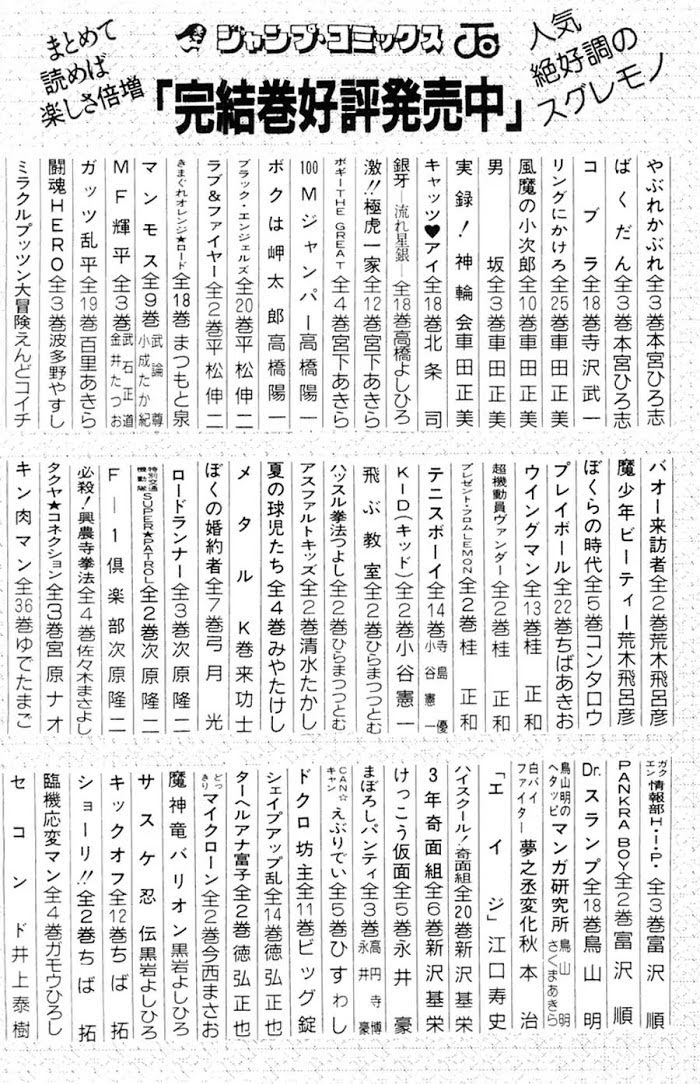 まとめて
読めば
楽しさ倍増
ジャンプ・コミックス
人気
絶好調の
スグレモノ
「完結巻好評発売中」
やぶれかぶれ全3巻本宮ひろ志
ばくだん全3巻本宮ひろ志
コブラ全18巻寺沢武一
リングにかけろ全25巻車田正美
風魔の小次郎全10巻車田正美
男坂全3巻車田正美
実録!神輪会車田正美
キャッツ♥アイ全18巻北条司
銀牙 流れ星銀 全18巻高橋よしひろ
激!!極虎一家全12巻宮下あきら
ボギーTHE GREAT全4巻宮下あきら
100Mジャンパー高橋陽一
ボクは岬太郎高橋陽一
ブラック・エンジェルズ全20巻平松伸二
ラブ&ファイヤー全2巻平松伸二
きまぐれオレンジ★ロード全18巻まつもと泉
マンモス全9巻武論尊小成たか紀
MF輝平全3巻武石正道金井たつお
ガッツ乱平全19巻百里あきら
闘魂HERO全3巻波多野やすし
ミラクルプッツン大冒険えんどコイチ
バオー来訪者全2巻荒木飛呂彦
魔少年ビーティー荒木飛呂彦
ぼくらの時代全5巻コンタロウ
プレイボール全22巻ちばあきお
ウイングマン全13巻桂正和
超機動員ヴァンダー全2巻桂正和
プレゼント・フロムLEMON全2巻桂正和
テニスボーイ全14巻寺島優小谷憲一
KID(キッド)全2巻小谷憲一
飛ぶ教室全2巻ひらまつつとむ
ハッスル拳法つよし全2巻ひらまつつとむ
アスファルトキッズ全2巻清水たかし
夏の球児たち全4巻みやたけし
メタルK巻来功士
ぼくの婚約者全7巻弓月光
ロードランナー全3巻次原隆二
特別交通機動隊SUPER★PATROL全2巻次原隆二
F―1倶楽部次原隆二
必殺!興農寺拳法全4巻佐々木まさよし
タクヤ★コネクション全3巻宮原ナオ
キン肉マン全36巻ゆでたまご
ガクエン情報部H・I・P・全3巻富沢順
PANKRA BOY全2巻富沢順
Dr.スランプ全18巻鳥山明
鳥山明のヘタッピマンガ研究所鳥山明さくまあきら
白バイファイター夢之丞変化秋本治
「エイジ」江口寿史
ハイスクール!奇面組全20巻新沢基栄
3年奇面組全6巻新沢基栄
けっこう仮面全5巻永井豪
まぼろしパンティ全3巻高円寺博永井豪
CAN☆キャンえぶりでい全5巻ひすわし
ドクロ坊主全11巻ビッグ錠
シェイプアップ乱全14巻徳弘正也
ターヘルアナ富子全2巻徳弘正也
どっきりマイクローン全2巻今西まさお
魔神竜バリオン黒岩よしひろ
サスケ忍伝黒岩よしひろ
キックオフ全12巻ちば拓
ショーリ!!全2巻ちば拓
臨機応変マン全4巻ガモウひろし
セコンド井上泰樹